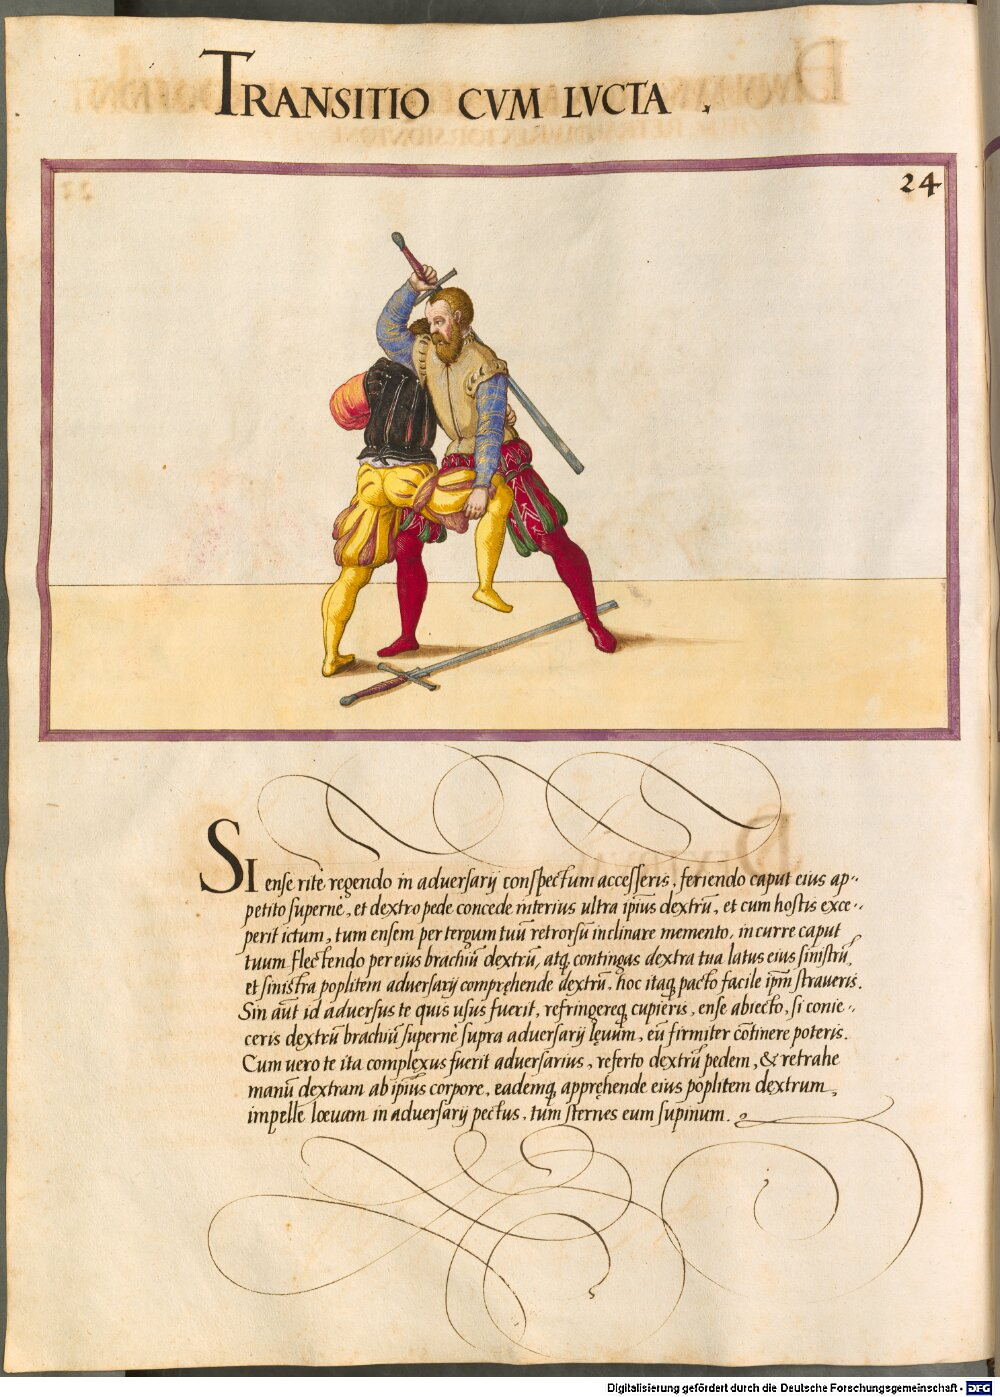 TRANSITIO CVM LVCTA.
24
SI ense rite regendo in adversarij conspectum accesseris, feriendo caput eius ap-
petito superne, et dextro pede concede interius ultra ipius dextrū, et cum hostis exce-
perit ictum, tum ensem per tergum tuū retrorsū inclinare memento, incurre caput
tuum flectendo per eius brachiū dextrū, atq, contingas dextra tua latus eius sinistrū,
et sinistra poplitem adversarij compręhende dextrū, hoc itaq pacto facile ipm straveris.
Sin aut id adversus te quis usus fuerit, refringereq cupieris, ense abiecto, si conie-
ceris dextrū brachiū superne supra adversarij lęuum, eū firmiter cōtinere poteris.
Cum uero te ita complexus fuerit adversarius, referto dextrū pedem, & retrahe
manū dextram ab ipius corpore, eademq, appręhende eius poplitem dextrum,
impelle lœuam in adversarij pectus, tum sternes eum supinum.
Digitalisierung gefördert durch die Deutsche Forschungsgemeinschaft - DFG